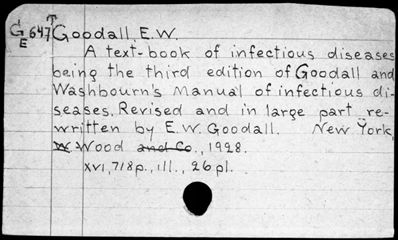 T
G 647 Goodall, E.W.
E
A text-book of infectious diseases
being the third edition of Goodall and
Washbourn's Manual of infectious di-
seases. Revised and in large part re-
written by E.W. Goodall. New York,
W. Wood and Co., 1928.
xvi, 718p., ill., 26 pl.